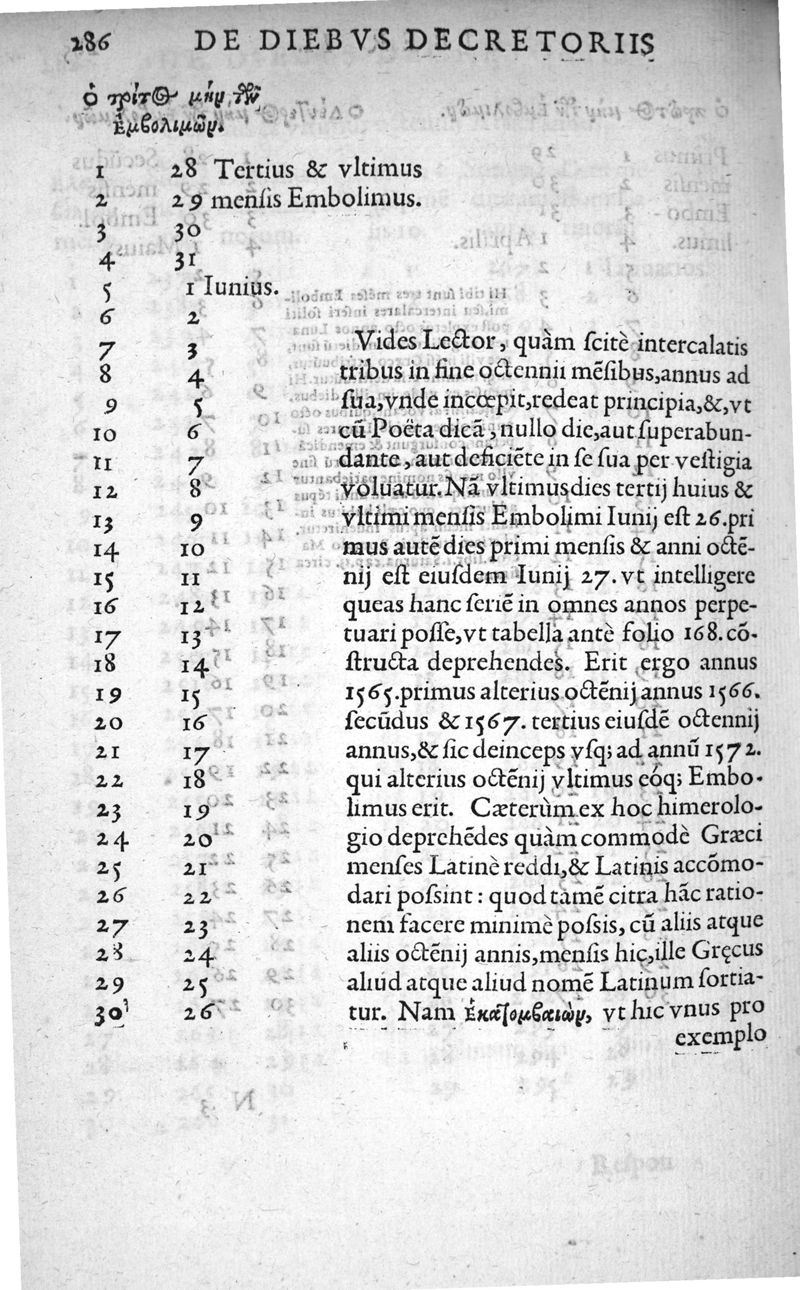 286 DE DIEBVS DECRETORIIS
ὁ τρίτος μὴν τῶν
ἐμβολιμῶν.
1 28 Tertius & vltimus
2 29 menſis Embolimus.
3 30
4 31
5 1 Iunius.
6 2
7 3
8 4
9 5
10 6
11 7
12 8
13 9
14 10
15 11
16 12
17 13
18 14
19 15
20 16
21 17
22 18
23 19
24 20
25 21
26 22
27 23
28 24
29 25
30 26
Vides Lector, quàm ſcitè intercalatis
tribus in fine octennii mēſibus,annus ad
ſua,vnde incœpit,redeat principia,&,vt
cū Poëta dicā, nullo die,aut ſuperabun-
dante, aut deficiēte in ſe ſua per veſtigia
voluatur. Nā vltimus dies tertij huius &
vltimi menſis Embolimi Iunij eſt 26. pri
mus autē dies primi menſis & anni octē-
nij eſt eiuſdem Iunij 27. vt intelligere
queas hanc ſeriē in omnes annos perpe-
tuari poſſe,vt tabella antè folio 168. cō-
ſtructa deprehendes. Erit ergo annus
1565.primus alterius octēnij annus 1566.
ſecūdus & 1567. tertius eiuſdē octennij
annus,& ſic deinceps vſq; ad annū 1572.
qui alterius octēnij vltimus eóq; Embo-
limus erit. Cæterùm ex hoc himerolo-
gio deprehēdes quàm commodè Græci
menſes Latinè reddi,& Latinis accōmo-
dari poſsint : quod tamē citra hāc ratio-
nem facere minimè poſsis, cū aliis atque
aliis octēnij annis,menſis hic,ille Gręcus
aliud atque aliud nomē Latinum ſortia-
tur. Nam ἑκατομβαιὼν, vt hic vnus pro
exemplo